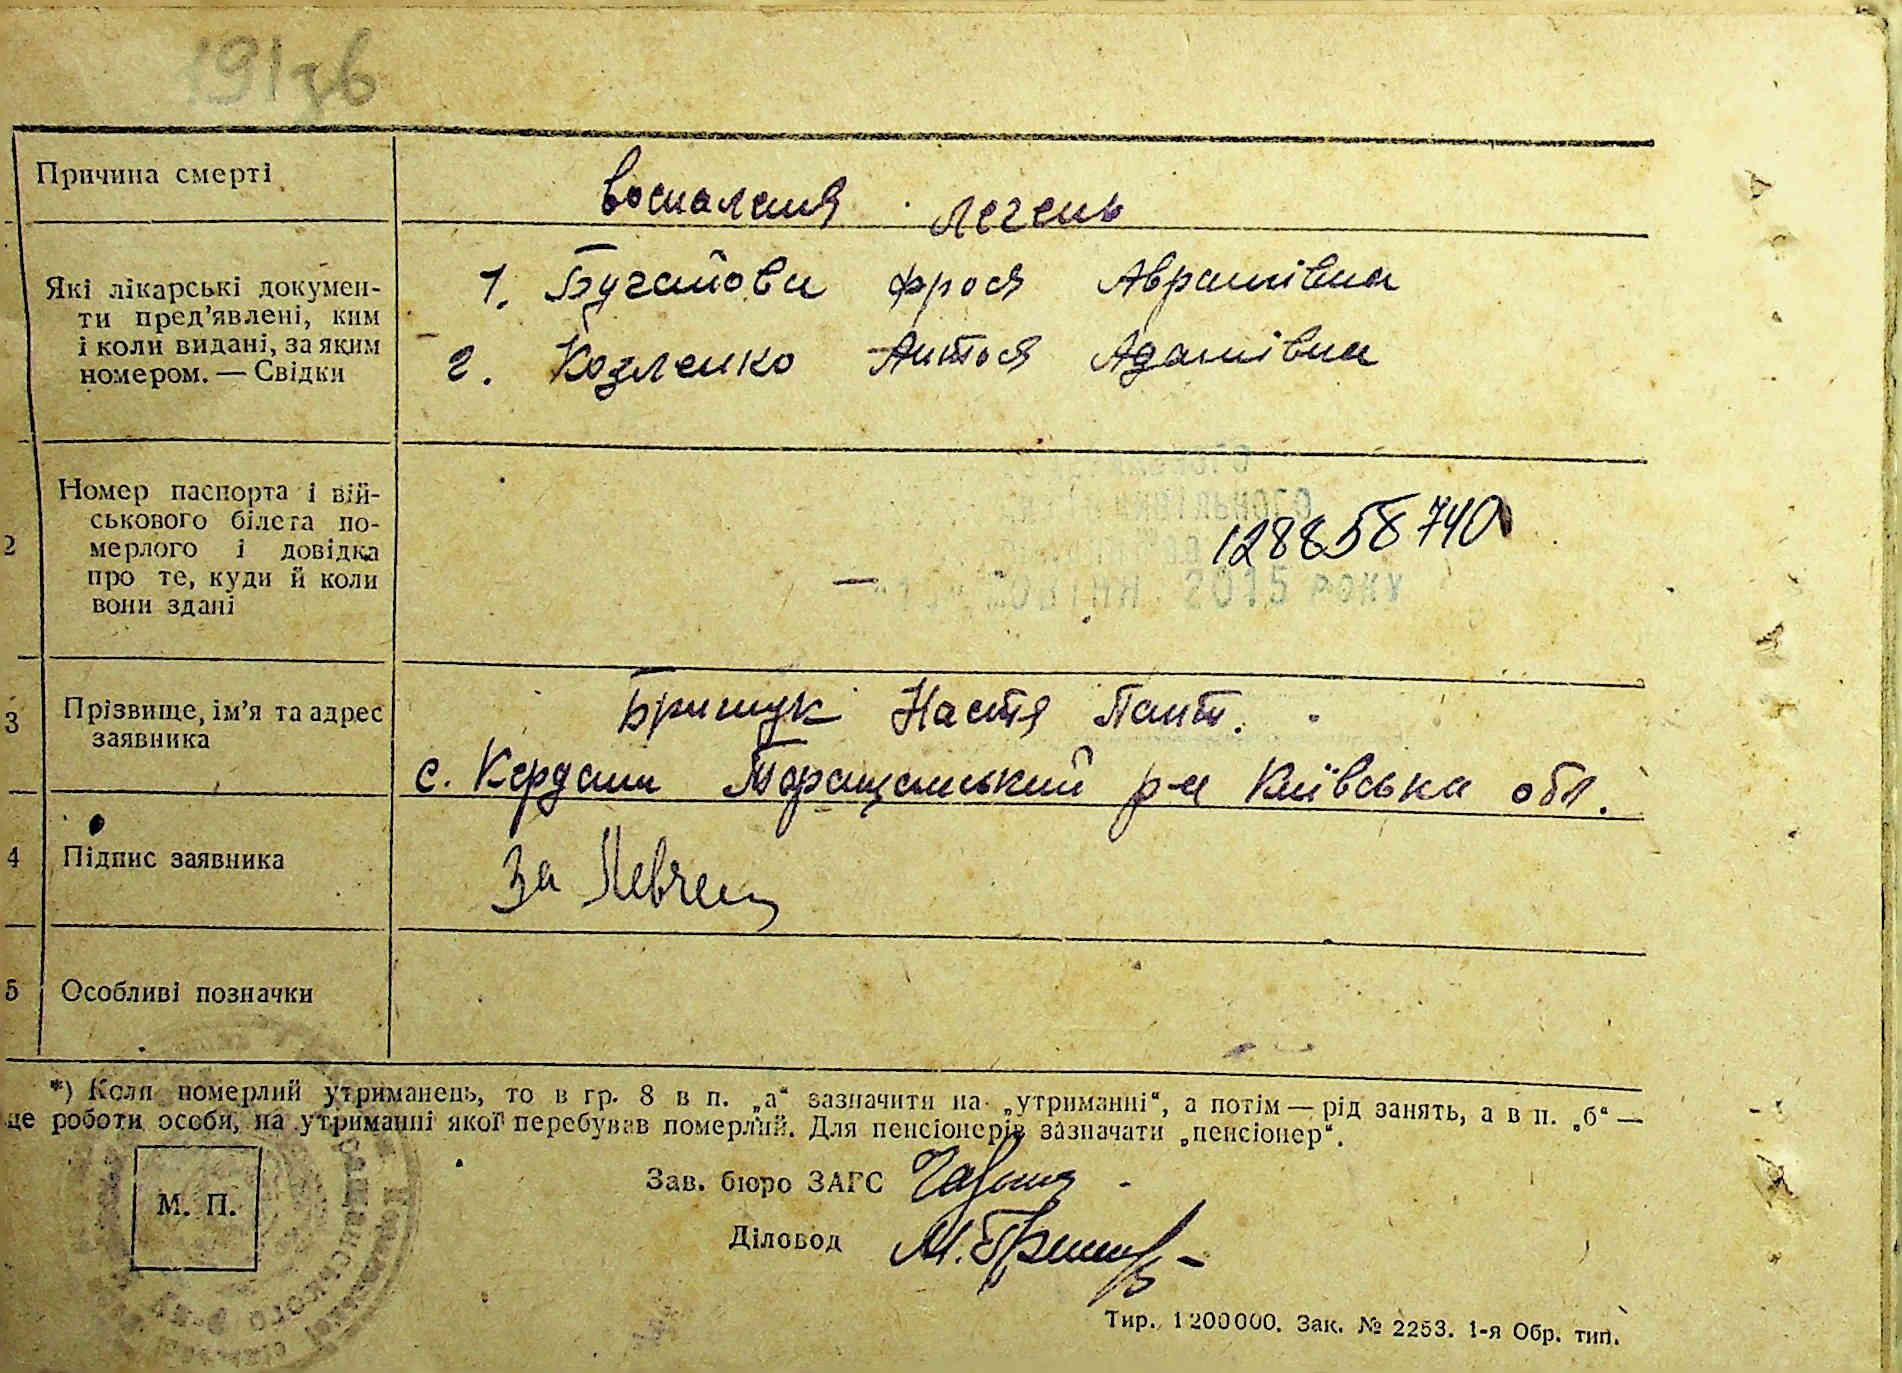 191зв
Причина смерті
воспаления легень
Які лікарські докумен-
ти пред'явлені, ким
і коли видані, за яким
номером. — Свідки
1. Фрося Аврамівна
2. Козленко Антося Адамівна
2
Номер паспорта і вій-
ськового білета по-
мерлого і довідка
про те, куди й коли
вони здані
128858740
2015 РОКУ
3
Прізвище, ім'я та адрес
заявника
Грищук Настя Пант.
с. Кердани Таращанський р-н Київська обл.
4
Підпис заявника
За
5
Особливі позначки
*) Коли померлий утриманець, то в гр. 8 в п. „а“ зазначити на „утриманні“, а потім — рід занять, а в п. „б“ —
це роботи особи, на утриманні якої перебував померлий. Для пенсіонерів зазначати „пенсіонер“.
М. П.
Зав. бюро ЗАГС
Діловод
Тир. 1200000. Зак. № 2253. 1-я Обр. тип.